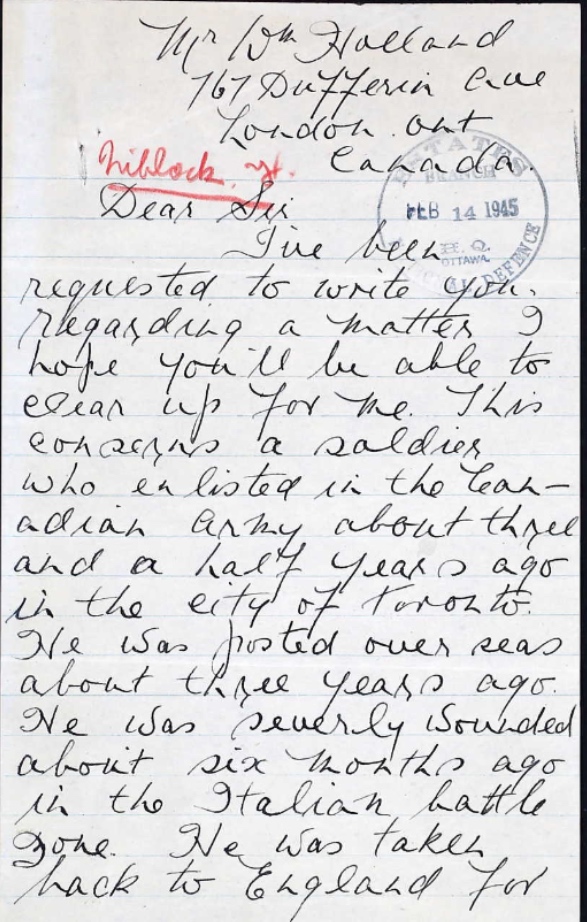 Mr Wm Holland
767 Dufferin Ave
London. Ont
Canada.
Niblock
Dear Sir
I've been
requested to write you.
regarding a matter I
hope you'll be able to
clear up for me. This
conserns a soldier
who enlisted in the Can-
adian Army about three
and a half years ago
in the city of Toronto.
He was posted over seas
about three years ago.
He was severly wounded
about six months ago
in the Italian battle
zone. He was taken
back to England for
ESTATES
BRANCH
FEB 14 1945
H. Q.
OTTAWA
DEFENCE